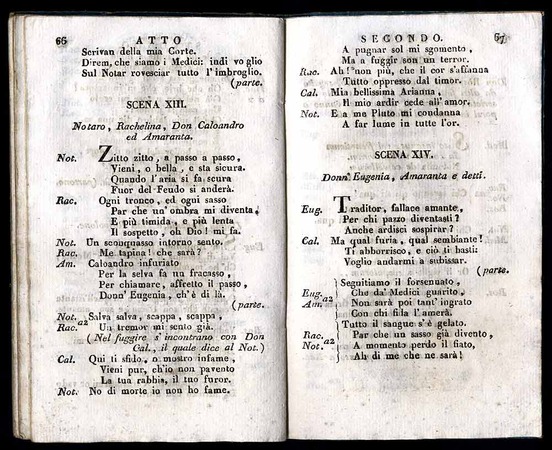 66 ATTO
Scrivan della mia Corte.
Direm, che siamo i Medici: indi voglio
Sul Notar rovesciar tutto l'imbroglio.
(parte.
SCENA XIII.
Notaro, Rachelina, Don Caloandro
ed Amaranta.
Not. Zitto zitto, a passo a passo,
Vieni, o bella, e sta sicura.
Quando l'aria si fa scura
Fuor del Feudo si anderà.
Rac. Ogni tronco, ed ogni sasso
Par che un'ombra mi diventa,
E più timida, e più lenta
Il sospetto, oh Dio! mi fa.
Not. Un sconquasso intorno sento.
Rac. Me tapina! che sarà?
Am. Caloandro infuriato
Per la selva fa un fracasso,
Per chiamare, affretto il passo,
Donn' Eugenia, ch'è di là.
(parte.
Not. Salva salva, scappa, scappa,
Rac. a2 Un tremor mi sento già.
(Nel fuggire s'incontrano con Don
Cal., il quale dice al Not.)
Cal. Qui ti sfido, o mostro infame,
Vieni pur, ch'io non pavento
La tua rabbia, il tuo furor.
Not. No di morte io non ho fame.
SECONDO. 67
A pugnar sol mi sgomento,
Ma a fuggir son un terror.
Rac. Ah! non più, che il cor s'affanna
Tutto oppresso dal timor.
Cal. Mia bellissima Arianna,
Il mio ardir cede all'amor.
Not. E a me Pluto mi condanna
A far lume in tutte l'or.
SCENA XIV.
Donn' Eugenia, Amaranta e detti.
Eug. Traditor, fallace amante,
Per chi pazzo diventasti?
Anche ardisci sospirar?
Cal. Ma qual furia, qual sembiante!
Ti abborrisco, e ciò ti basti:
Voglio andarmi a subissar.
(parte.
Seguitiamo il forsenuato,
Eug. Che da' Medici guarito,
Am. a2 Non sarà poi tant' ingrato
Con chi fila l'amerà.
Tutto il sangue s'è gelato.
Rac. Par che un sasso già divento,
Not. a2 A momento perdo il fiato,
Ah di me che ne sarà!